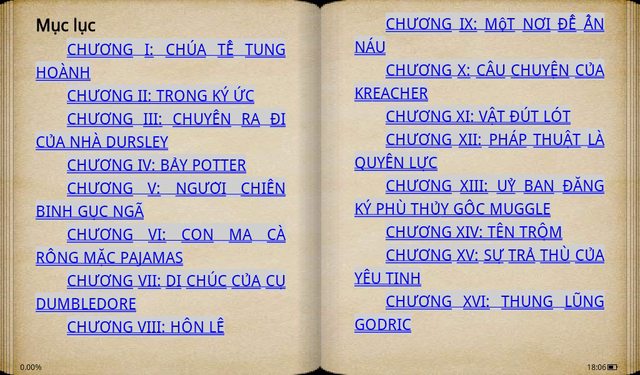 Mục lục
CHƯƠNG I: CHÚA TỂ TUNG
HOÀNH
CHƯƠNG II: TRONG KÝ ỨC
CHƯƠNG III: CHUYẾN RA ĐI
CỦA NHÀ DURSLEY
CHƯƠNG IV: BẢY POTTER
CHƯƠNG V: NGƯƠI CHIẾN
BINH GỤC NGÃ
CHƯƠNG VI: CON MA CÀ
RỒNG MẶC PAJAMAS
CHƯƠNG VII: DI CHÚC CỦA CỤ
DUMBLEDORE
CHƯƠNG VIII: HÔN LỄ
CHƯƠNG IX: MộT NƠI ĐỂ ẨN
NÁU
CHƯƠNG X: CÂU CHUYỆN CỦA
KREACHER
CHƯƠNG XI: VẬT ĐÚT LÓT
CHƯƠNG XII: PHÁP THUẬT LÀ
QUYỀN LỰC
CHƯƠNG XIII: UỶ BAN ĐĂNG
KÝ PHÙ THỦY GỐC MUGGLE
CHƯƠNG XIV: TÊN TRỘM
CHƯƠNG XV: SỰ TRẢ THÙ CỦA
YÊU TINH
CHƯƠNG XVI: THUNG LŨNG
GODRIC
0.00%
18:06